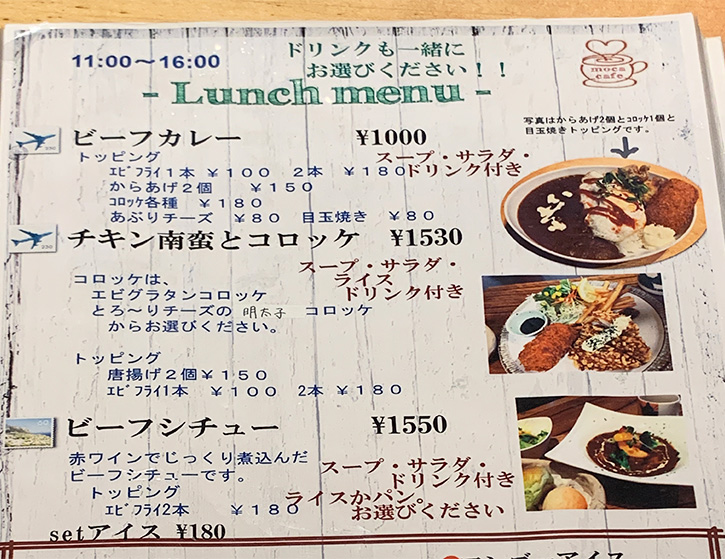 11:00～16:00
ドリンクも一緒に
お選びください！！
- Lunch menu -
moca
cafe
写真はからあげ2個とｺﾛｯｹ1個と
目玉焼きトッピングです。
ビーフカレー ¥1000
トッピング
ｴﾋﾞﾌﾗｲ１本 ￥１００ ２本 ￥１８０
からあげ２個 ￥１５０
ｺﾛｯｹ各種 ￥１８０
あぶりチーズ ￥８０ 目玉焼き ￥８０
スープ・サラダ・
ドリンク付き
チキン南蛮とコロッケ ¥1530
スープ・サラダ・
ライス
ドリンク付き
コロッケは、
エビグラタンコロッケ
とろ～りチーズの 明太子 コロッケ
からお選びください。
トッピング
唐揚げ２個￥１５０
ｴﾋﾞﾌﾗｲ1本 ￥１００ 2本 ￥１８０
ビーフシチュー ¥1550
赤ワインでじっくり煮込んだ
ビーフシチューです。
トッピング
ｴﾋﾞﾌﾗｲ2本 ￥１８０
スープ・サラダ・
ドリンク付き
ライスかパン。
お選びください
setアイス ¥180